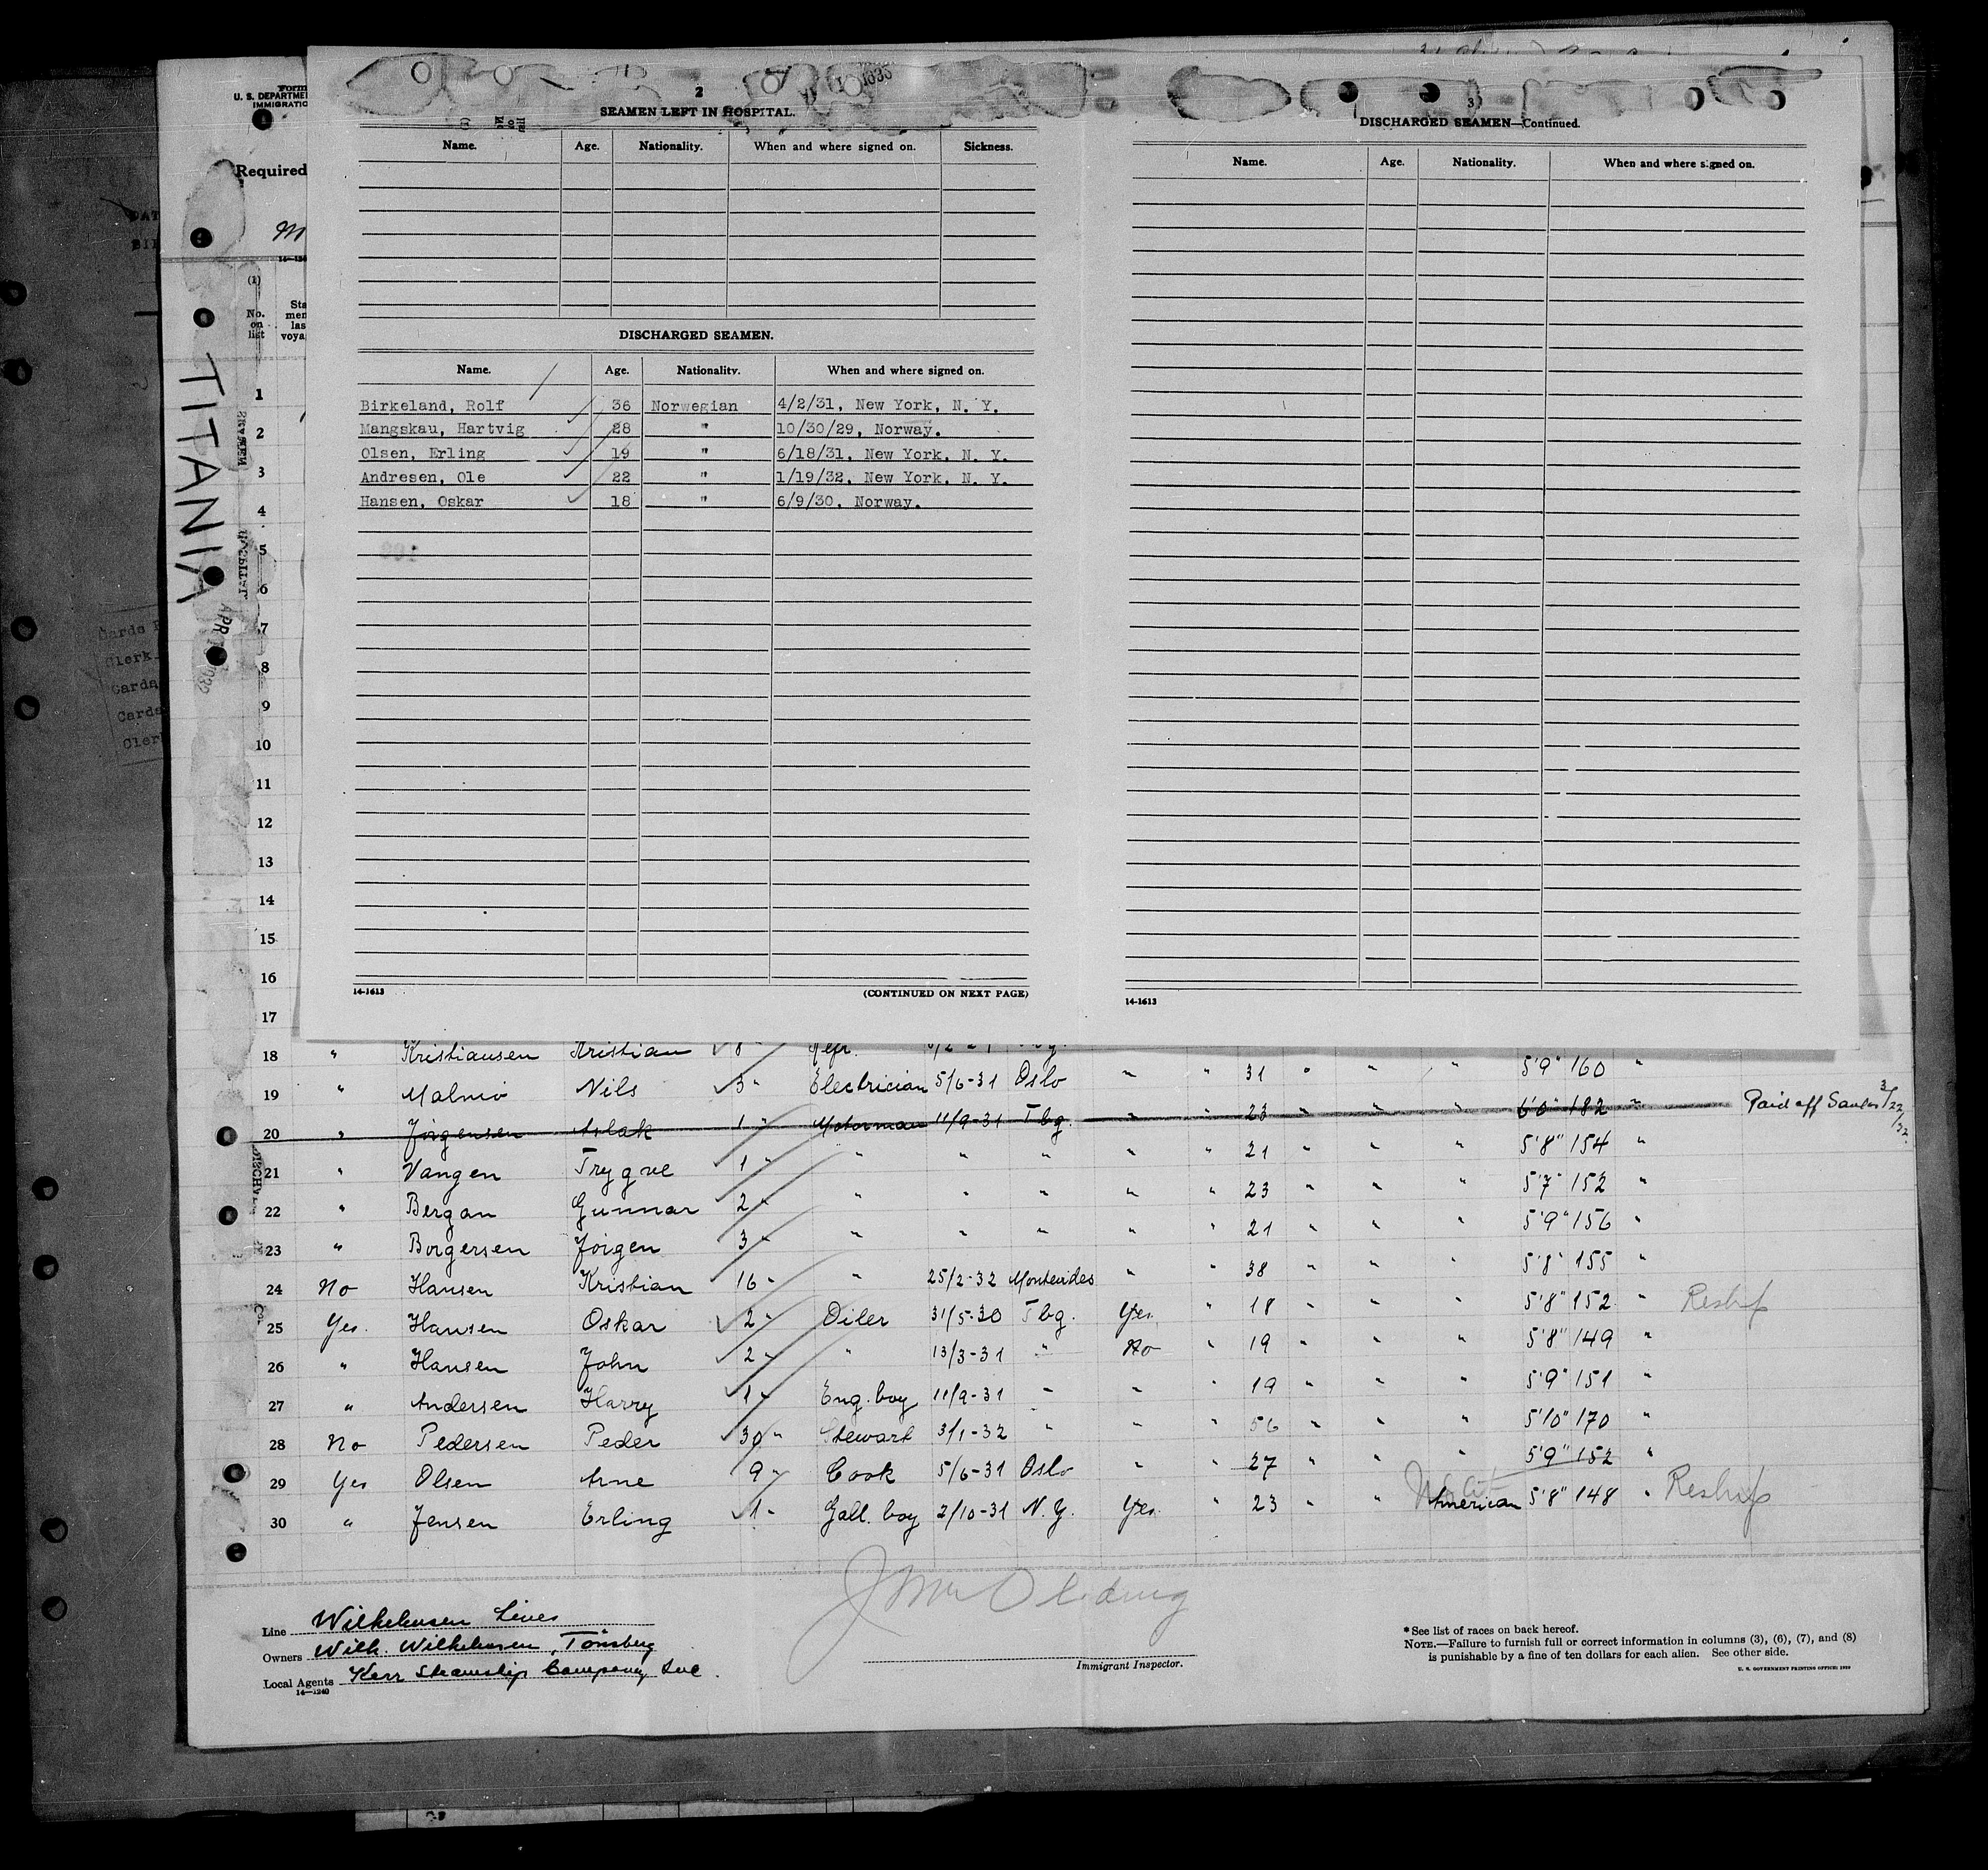 Form
U. S. DEPARTME
IMMIGRATIO
Required
TITANIA
APR
(1)
No.
on
list
Sta
men
las
voya
2
SEAMEN LEFT IN HOSPITAL.
Name. Age. Nationality. When and where signed on. Sickness.
DISCHARGED SEAMEN.
Name. Age. Nationality. When and where signed on.
Birkeland, Rolf 36 Norwegian 4/2/31, New York, N. Y.
Mangskau, Hartvig 28 " 10/30/29, Norway.
Olsen, Erling 19 " 6/18/31, New York, N. Y.
Andresen, Ole 22 " 1/19/32, New York, N. Y.
Hansen, Oskar 18 " 6/9/30, Norway.
14-1613 (CONTINUED ON NEXT PAGE)
3
DISCHARGED SEAMEN—Continued.
Name. Age. Nationality. When and where signed on.
14-1613
1
2
3
4
5
6
7
8
9
10
11
12
13
14
15
16
17
18 " Kristiansen Kristian 8 " Repr. " " 31 " " " 5'9" 160 "
19 " Malmö Nils 3 " Electrician 5/6-31 Oslo " " 31 " " " 5'9" 160 "
20 " Jørgensen Aslak 1 " Motorman 11/9-31 Tbg. " " 23 " " " 6'0" 182 " Paid off Santos 3/22/32.
21 " Vangen Trygve 1 " " " " " " 21 " " " 5'8" 154 "
22 " Bergan Gunnar 2 " " " " " " 23 " " " 5'7" 152 "
23 " Borgersen Jörgen 3 " " " " " " 21 " " " 5'9" 156 "
24 No Hansen Kristian 16 " " 25/2-32 Montevideo " " 38 " " " 5'8" 155 "
25 Yes. Hansen Oskar 2 " Oiler 31/5-30 Tbg. Yes. " 18 " " " 5'8" 152 " Reship
26 " Hansen John 2 " " 13/3-31 " No " 19 " " " 5'8" 149 "
27 " Andersen Harry 1 " Eng. boy 11/9-31 " " " 19 " " " 5'9" 151 "
28 No Pedersen Peder 30 " Stewart 3/1-32 " " " 56 " " " 5'10" 170 "
29 Yes Olsen Arne 9 " Cook 5/6-31 Oslo " " 27 " " " 5'9" 152 "
30 " Jensen Erling 1 " Gall. boy 2/10-31 N.Y. Yes. " 23 " " American 5'8" 148 " Reship
Line Wilhelmsen Lines
Owners Wilh. Wilhelmsen, Tönsberg
Local Agents Kerr Steamship Company Inc.
14—1240
Immigrant Inspector.
*See list of races on back hereof.
NOTE.—Failure to furnish full or correct information in columns (3), (6), (7), and (8)
is punishable by a fine of ten dollars for each alien. See other side.
U. S. GOVERNMENT PRINTING OFFICE: 1930